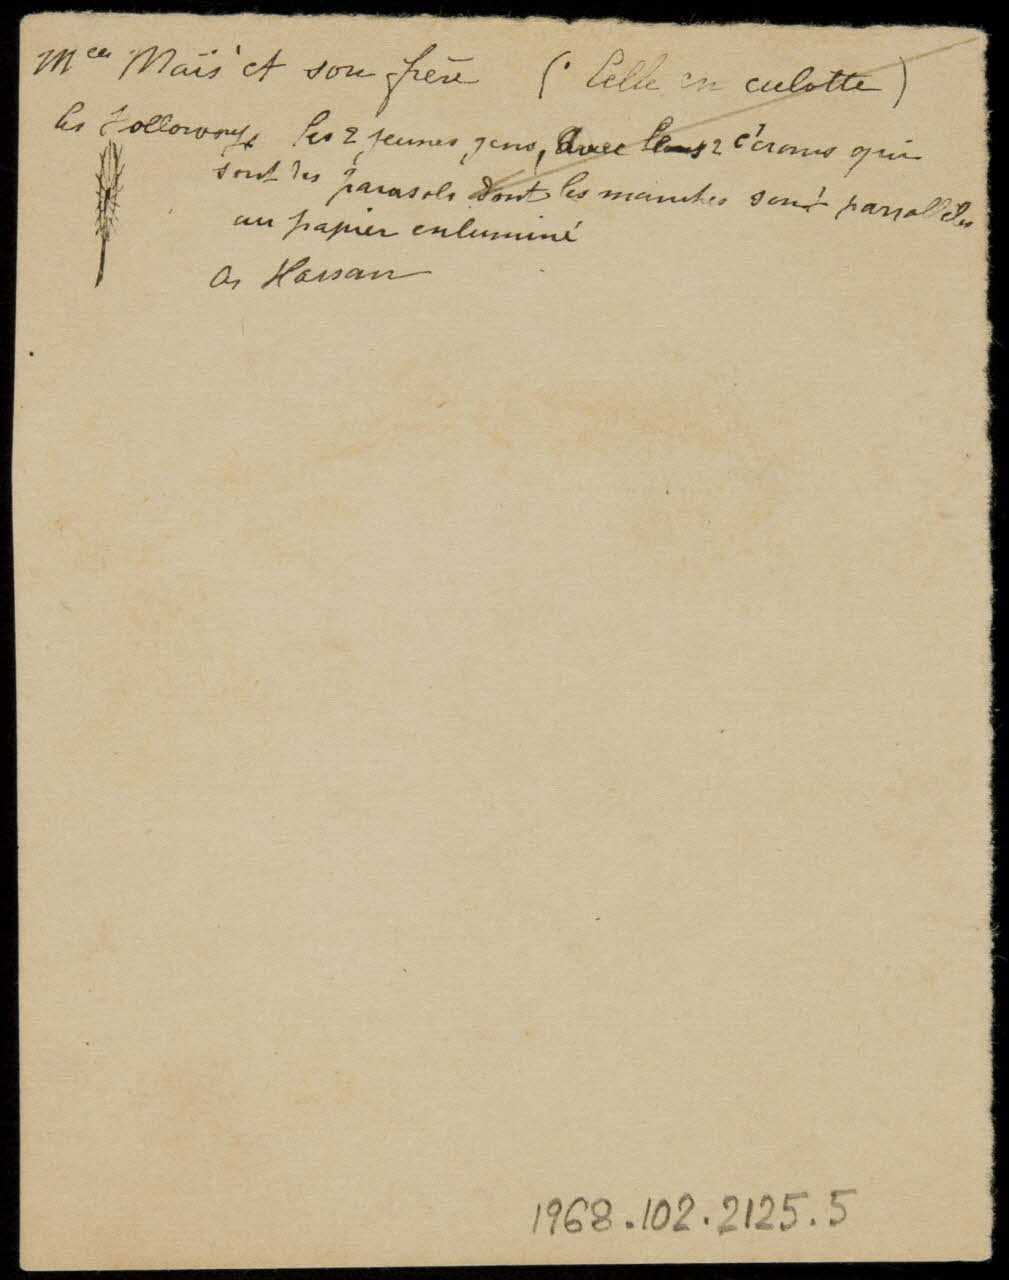 Mlle Maïs et son frère (Celle en culotte)
les Followays les 2 jeunes gens, avec 2 écrans qui
sont des parasols dont les manches sont parrallèles
au papier enluminé
as Hassan
1968.102.2125.5